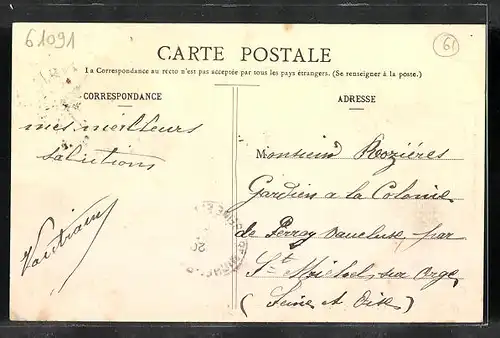 61091
61
CARTE POSTALE
La Correspondance au recto n'est pas acceptée par tous les pays étrangers. (Se renseigner à la poste.)
CORRESPONDANCE
mes meilleurs
salutions
Vautrain
ADRESSE
Monsieur Rozières
Gardien a la Colonie
de Perray Vaucluse par
St Michel sur Orge
(Seine et Oise)